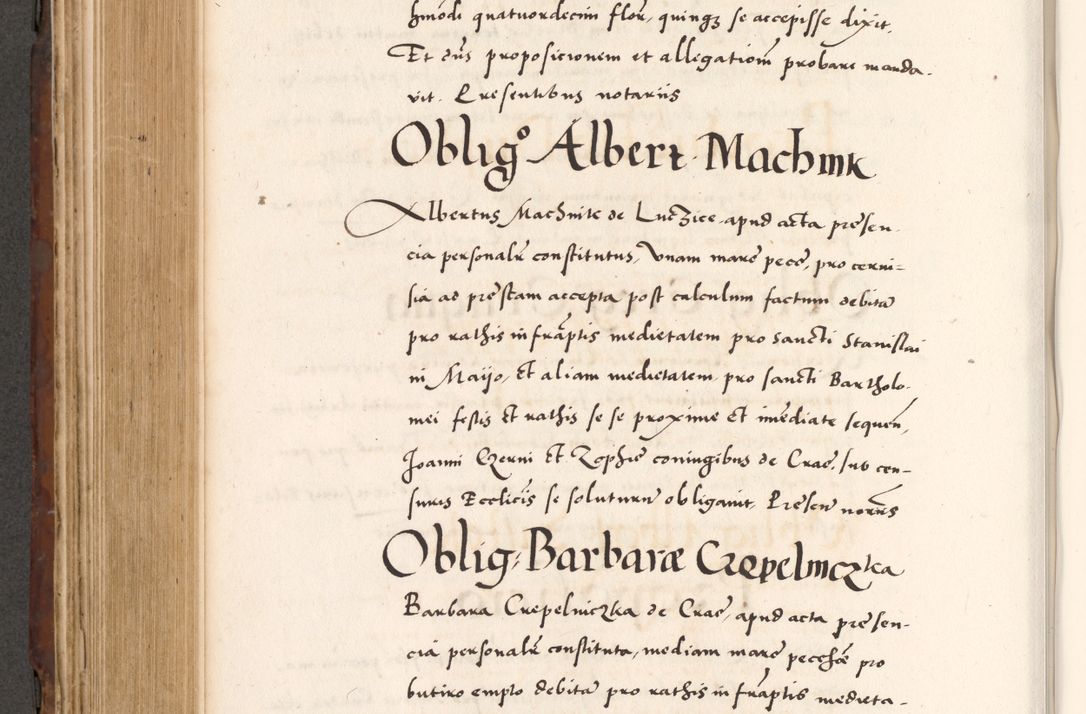 hmodi quatuordecim flor, quinqȝ se accepisse dixit.
Et dns proposicionem et allegationem probare manda-
vit. Presentibus notariis
Oblig⁰ Albert Machnik
Albertus Machnik de Luczice apud acta presen-
cia personalr constitutus, Vnam marc pece, pro cerui-
sia ad prestam accepta post calculum factum debita
pro rathis infraptis medietatem pro Sancti Stanislai
in Maijo, Et aliam medietatem pro sancti Bartholo-
mei festis Et rathis se se proxime Et imediate sequen,
Joanni Czerni Et Zophie coniugibus de Crac, sub cen-
suris Ecclicis se soluturu obligauit. Presen noriis
Oblig: Barbaræ Czepelniczka
Barbara Czepelniczka de Crac, apud acta presen-
cia personalr constituta, mediam marc pecchæ pro
butiro empto debita pro rathis infraptis medieta-